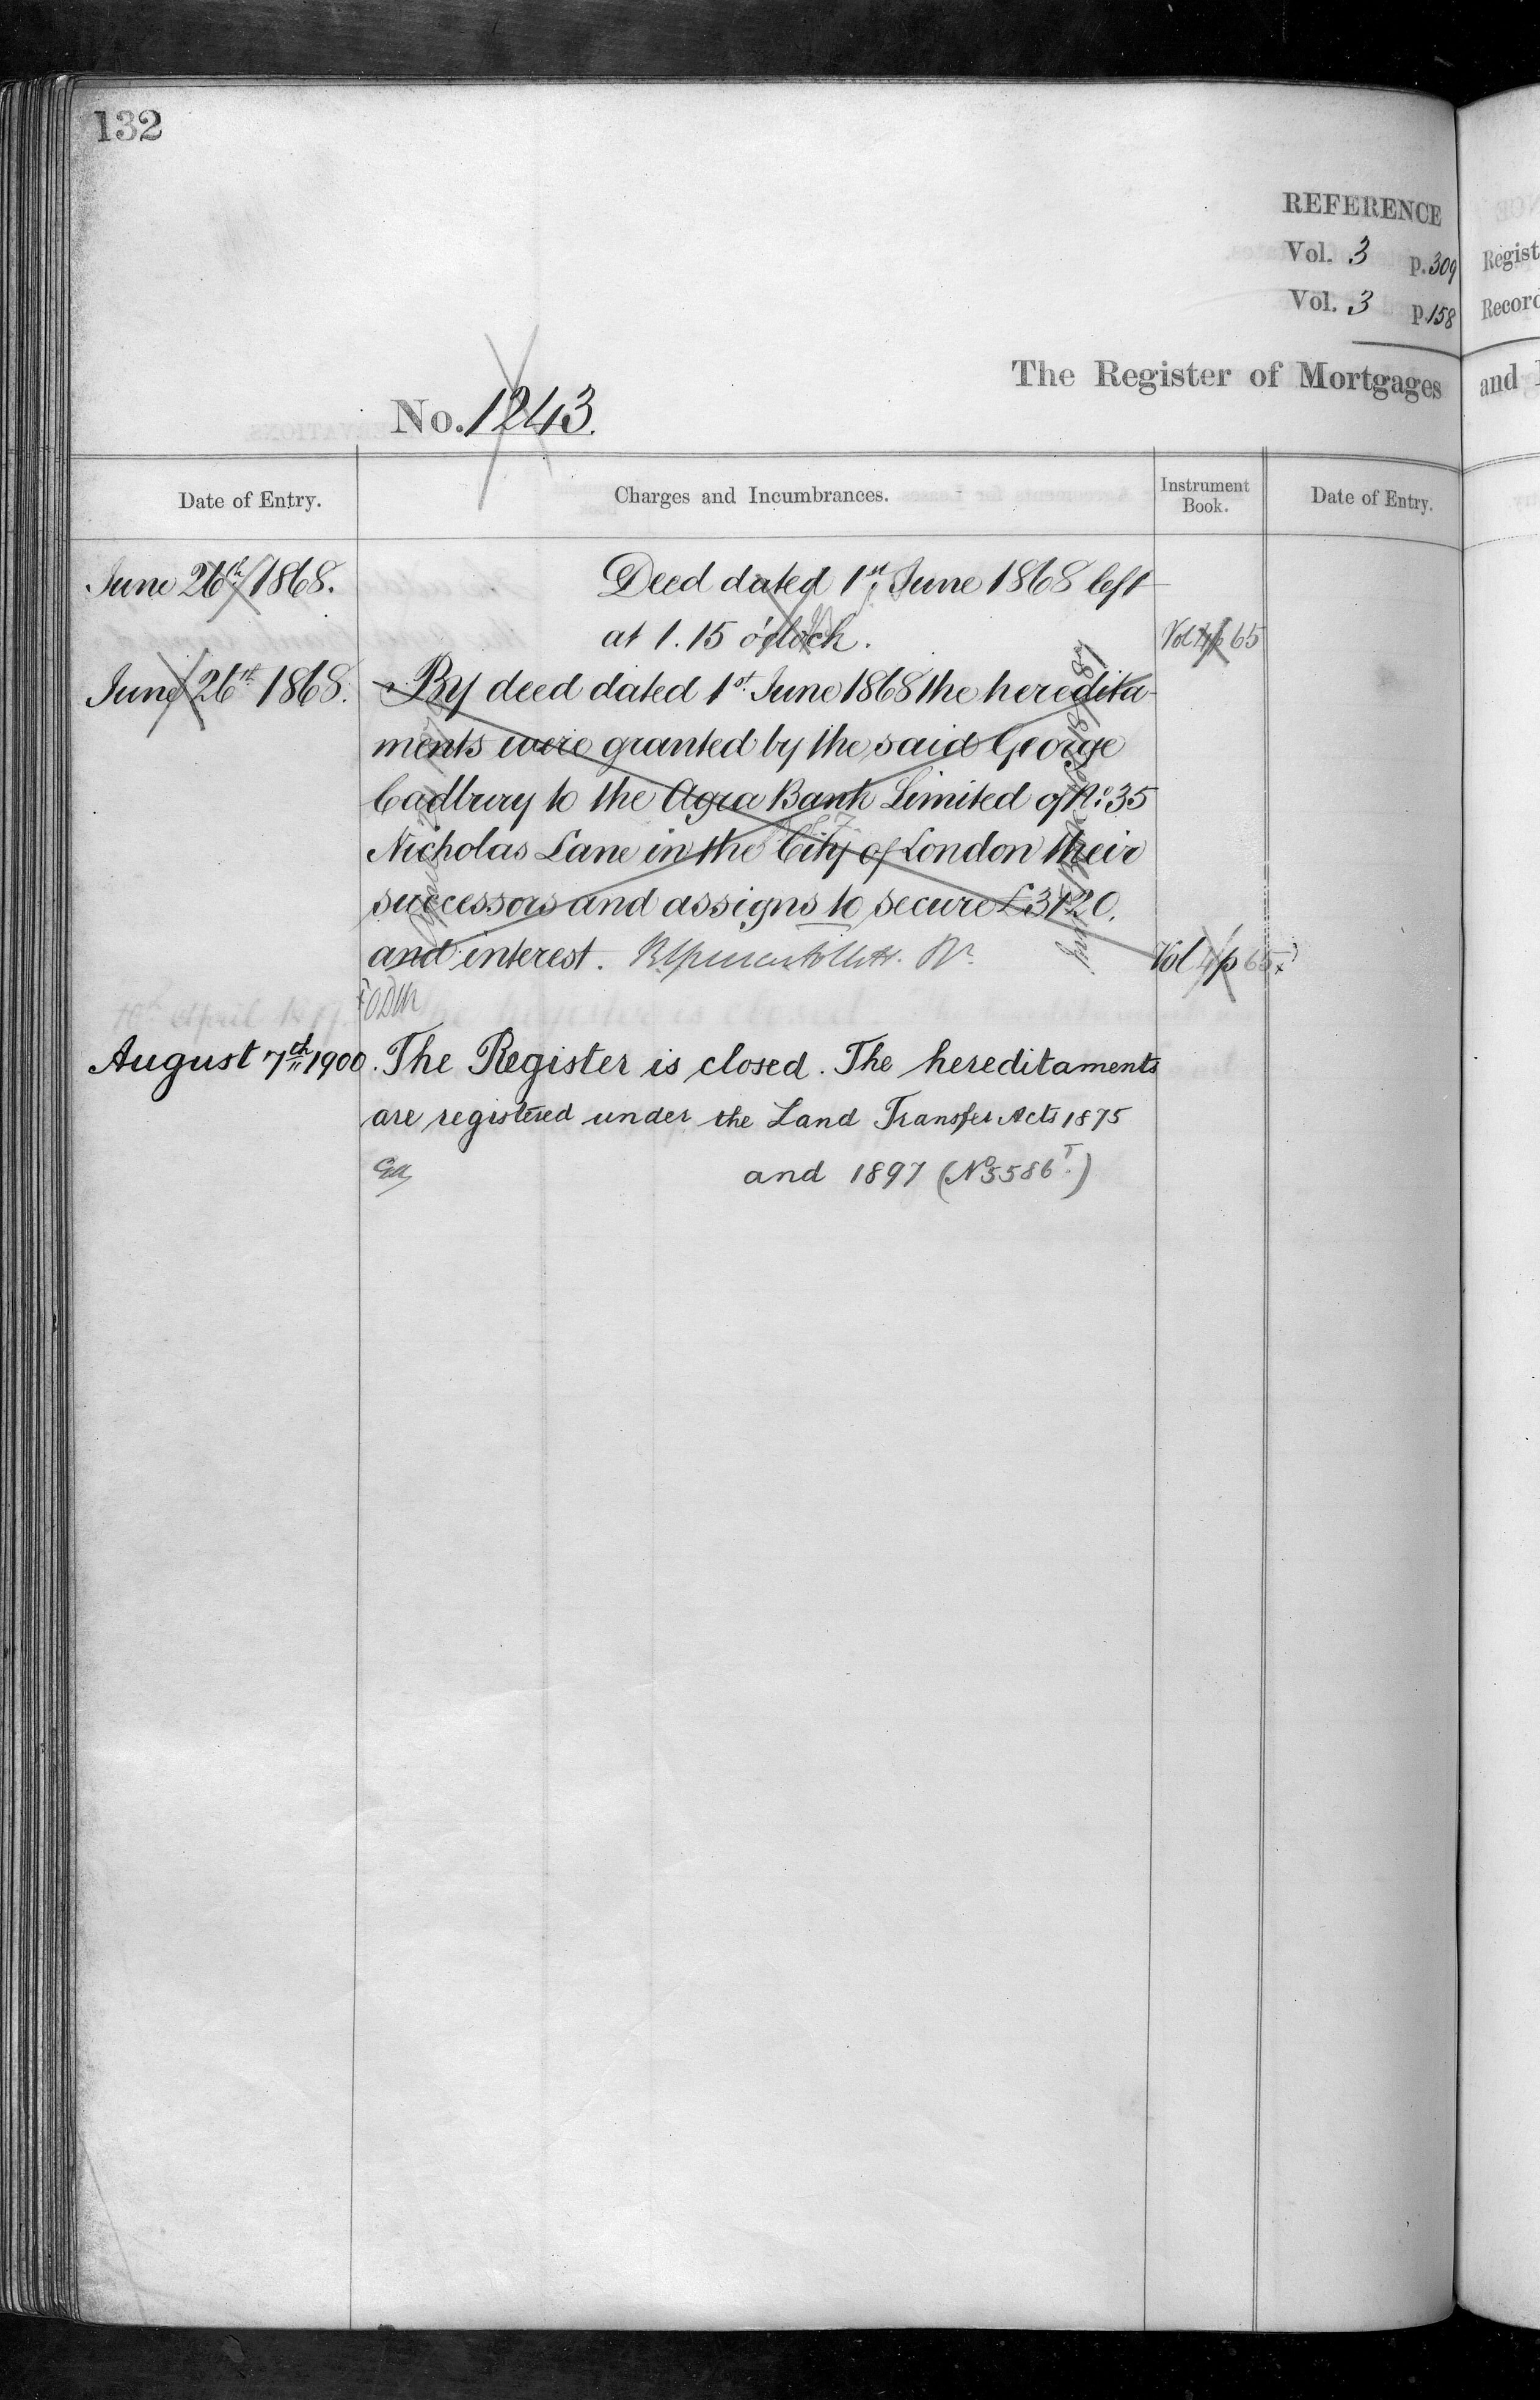 132
REFERENCE
Vol. 3 p. 309
Vol. 3 p. 158
Regist
Record
The Register of Mortgages
and
No. 1243.
Date of Entry.
Charges and Incumbrances.
Instrument Book.
Date of Entry.
June 26th 1868.
Deed dated 1st June 1868 left
at 1.15 o'clock.
Vol 4 p 65
June 26th 1868.
By deed dated 1st June 1868 the heredita-
ments were granted by the said George
Cadbury to the Agra Bank Limited of No. 35
Nicholas Lane in the City of London their
successors and assigns to secure £3120.
and interest.
Vol 4 p 65
August 7th 1900.
The Register is closed. The hereditaments
are registered under the Land Transfer Acts 1875
and 1897 (No 5586T.)